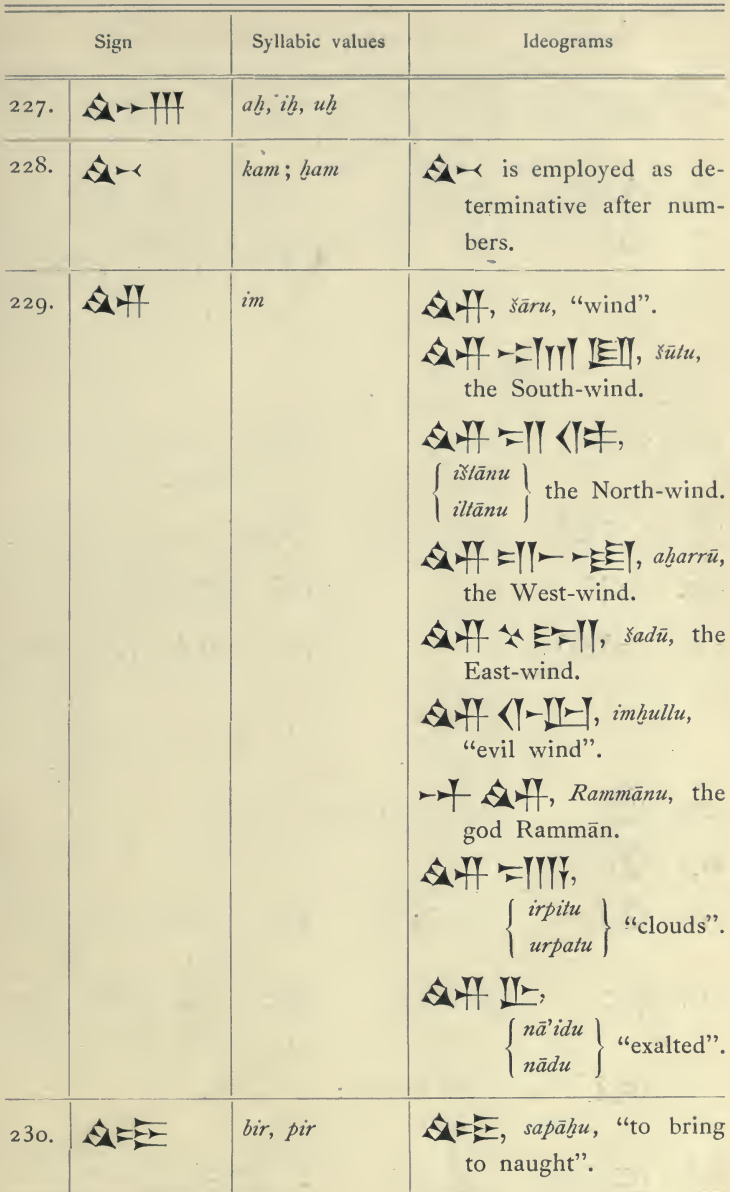 Sign Syllabic values Ideograms
227. 𒄴 aḫ, iḫ, uḫ
228. 𒄰 kam; ḫam 𒄰 is employed as de-
terminative after num-
bers.
229. 𒅎 im 𒅎, šāru, “wind”.
𒅎 𒍇 𒇻, šūtu,
the South-wind.
𒅎 𒋛 𒁲,
{ ištānu
iltānu } the North-wind.
𒅎 𒈥 𒌅, aḫarrū,
the West-wind.
𒅎 𒆳 𒊏, šadū, the
East-wind.
𒅎 𒅆𒌨, imḫullu,
“evil wind”.
𒀭 𒅎, Rammānu, the
god Rammān.
𒅎 𒋛𒀀,
{ irpitu
urpatu } “clouds”.
𒅎 𒌇,
{ nā’idu
nādu } “exalted”.
230. 𒁔 bir, pir 𒁔, sapāḫu, “to bring
to naught”.